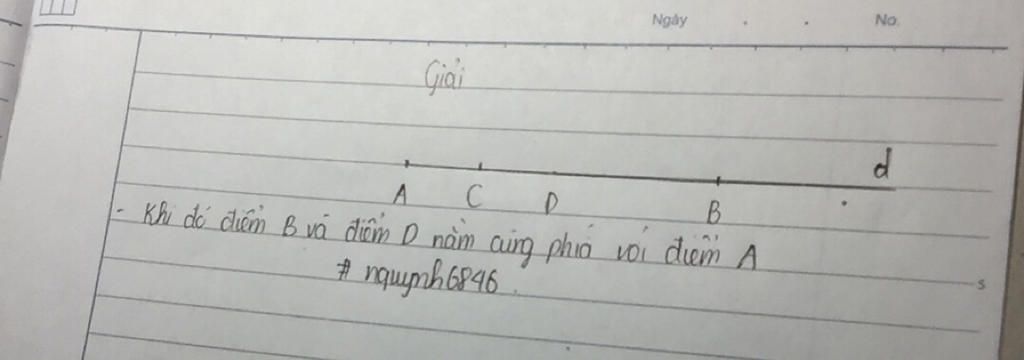 Ngày . . No.
Giải
d
A C D B
- Khi đó điểm B và điểm D nằm cùng phía với điểm A
# nquynh6846.
s